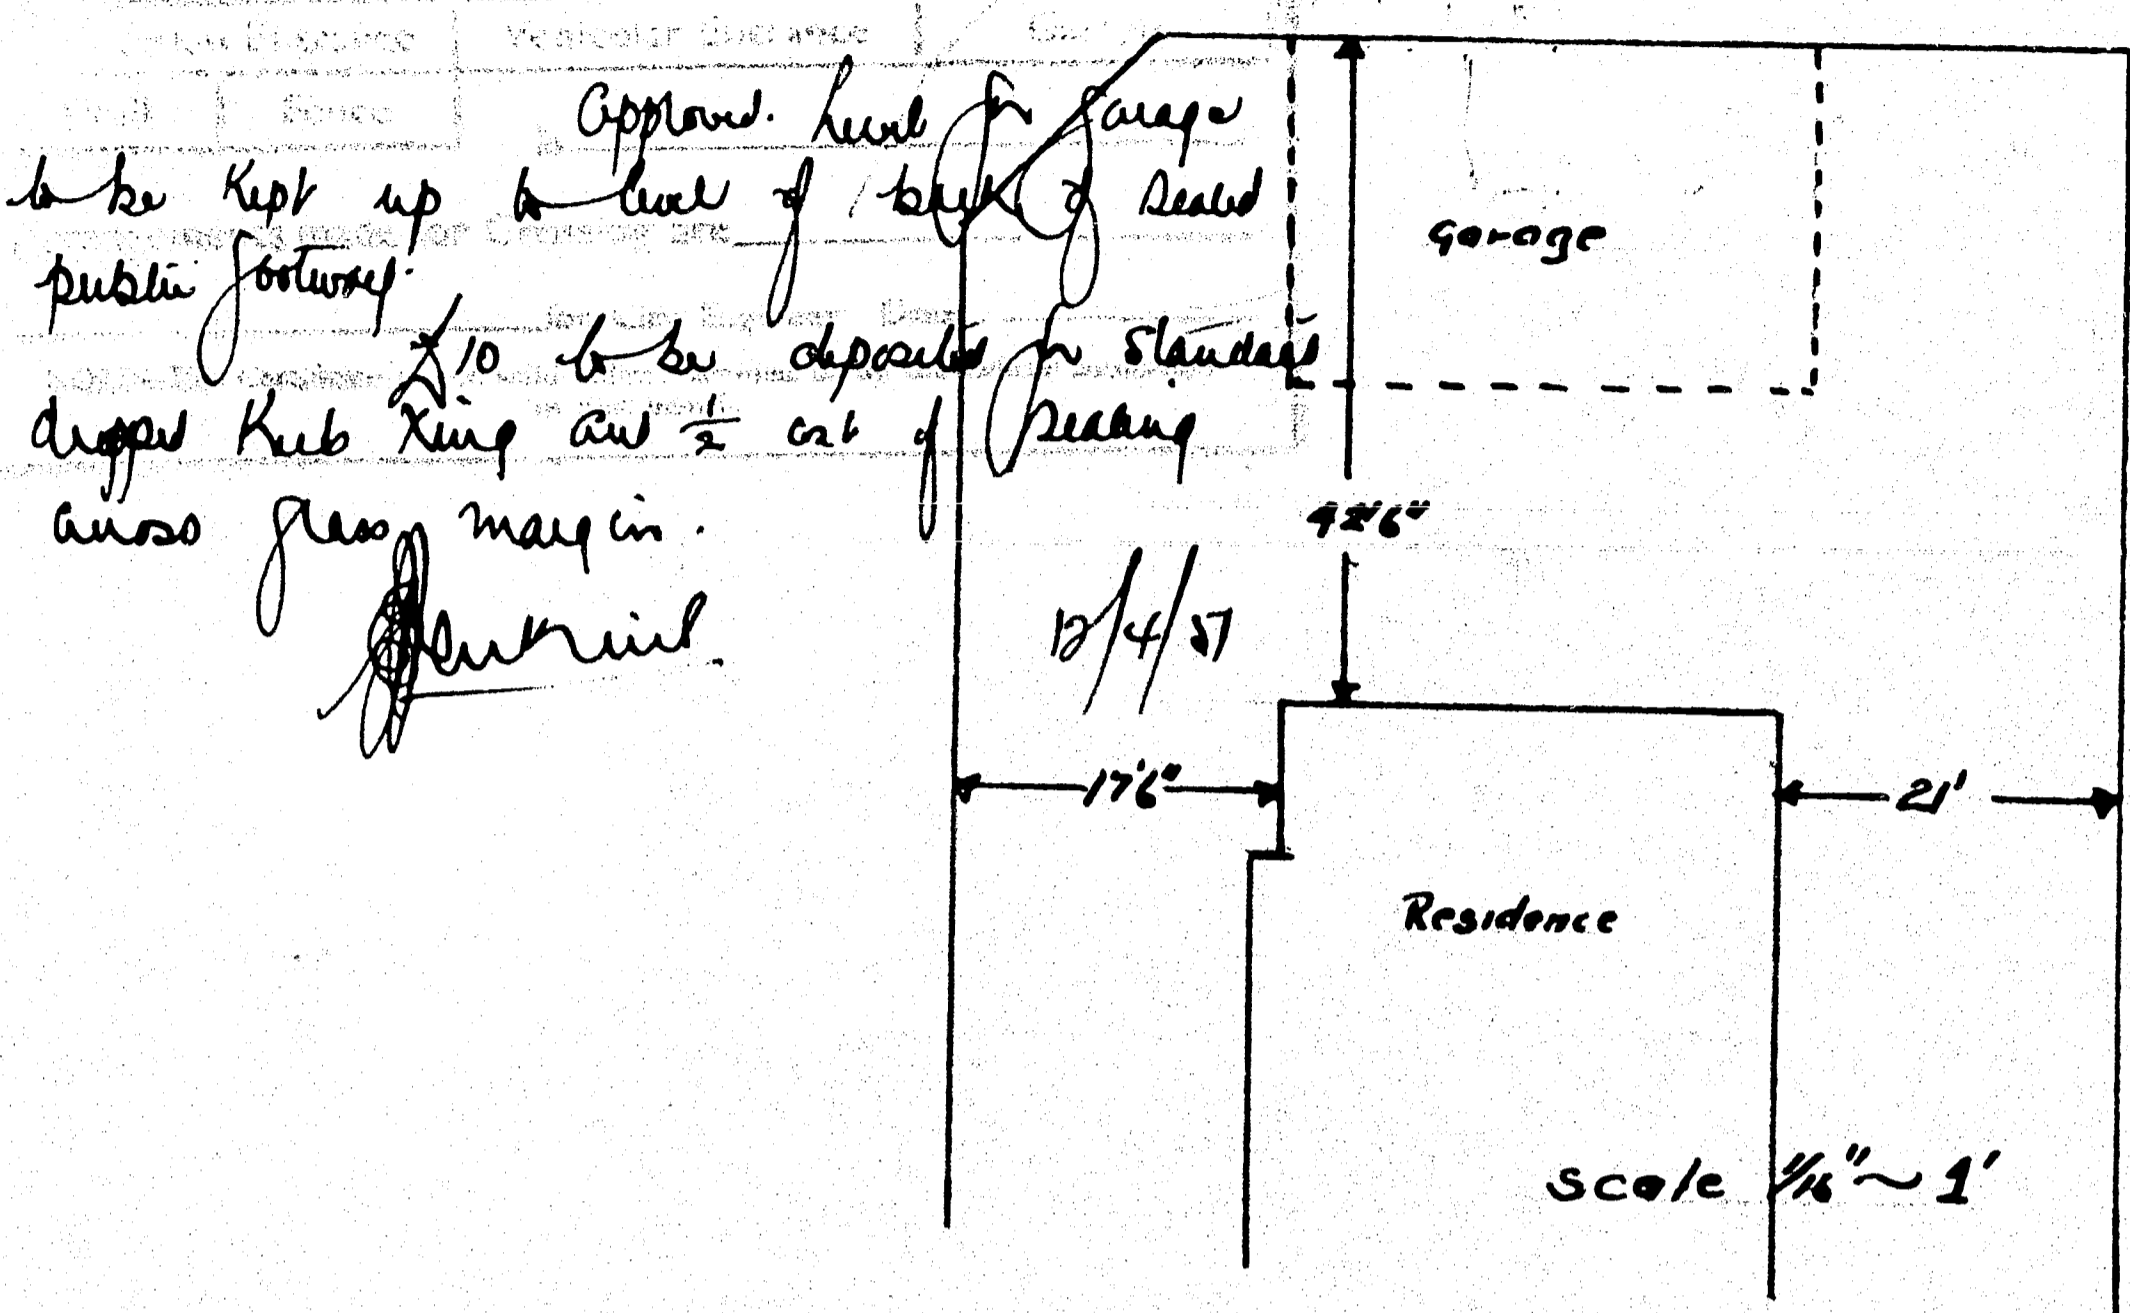 Approved. Level for Garage
to be Kept up to level of back of sealed
public footway.
£10 to be deposited for Standard
dropped Kerb Xing and ½ cost of sealing
across grass margin.
12/4/57
Garage
17'6"
21'
Residence
Scale 1/16" ~ 1'